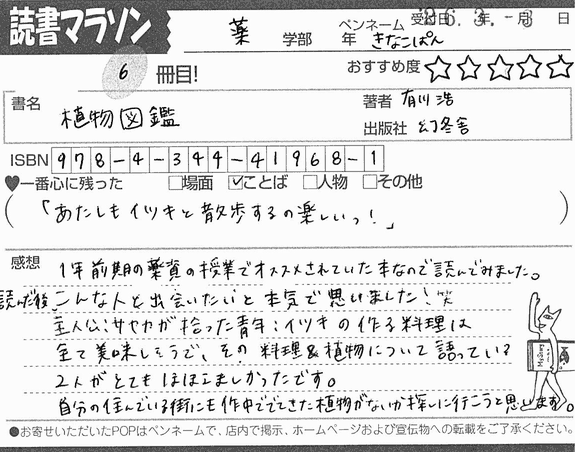 読書マラソン
薬 学部 年
ペンネーム きなこぱん
受付日 26. 3. -3 年 月 日
6 冊目!
おすすめ度 ☆☆☆☆☆
書名 植物図鑑
著者 有川 浩
出版社 幻冬舎
ISBN 978-4-344-41968-1
♥一番心に残った □場面 ☑ことば □人物 □その他
(「あたしもイツキと散歩するの楽しいっ!」)
感想 1年前期の薬資の授業でオススメされていた本なので読んでみました。
読んだ後こんな人と出会いたいと本気で思いました!笑
主人公:サヤカが拾った青年:イツキの作る料理は
全て美味しそうで、その料理&植物について語っている
2人がとてもほほえましかったです。
自分の住んでいる街にも作中ででてきた植物がないか探しに行こうと思います。
●お寄せいただいたPOPはペンネームで、店内で掲示、ホームページおよび宣伝物への転載をご了承ください。